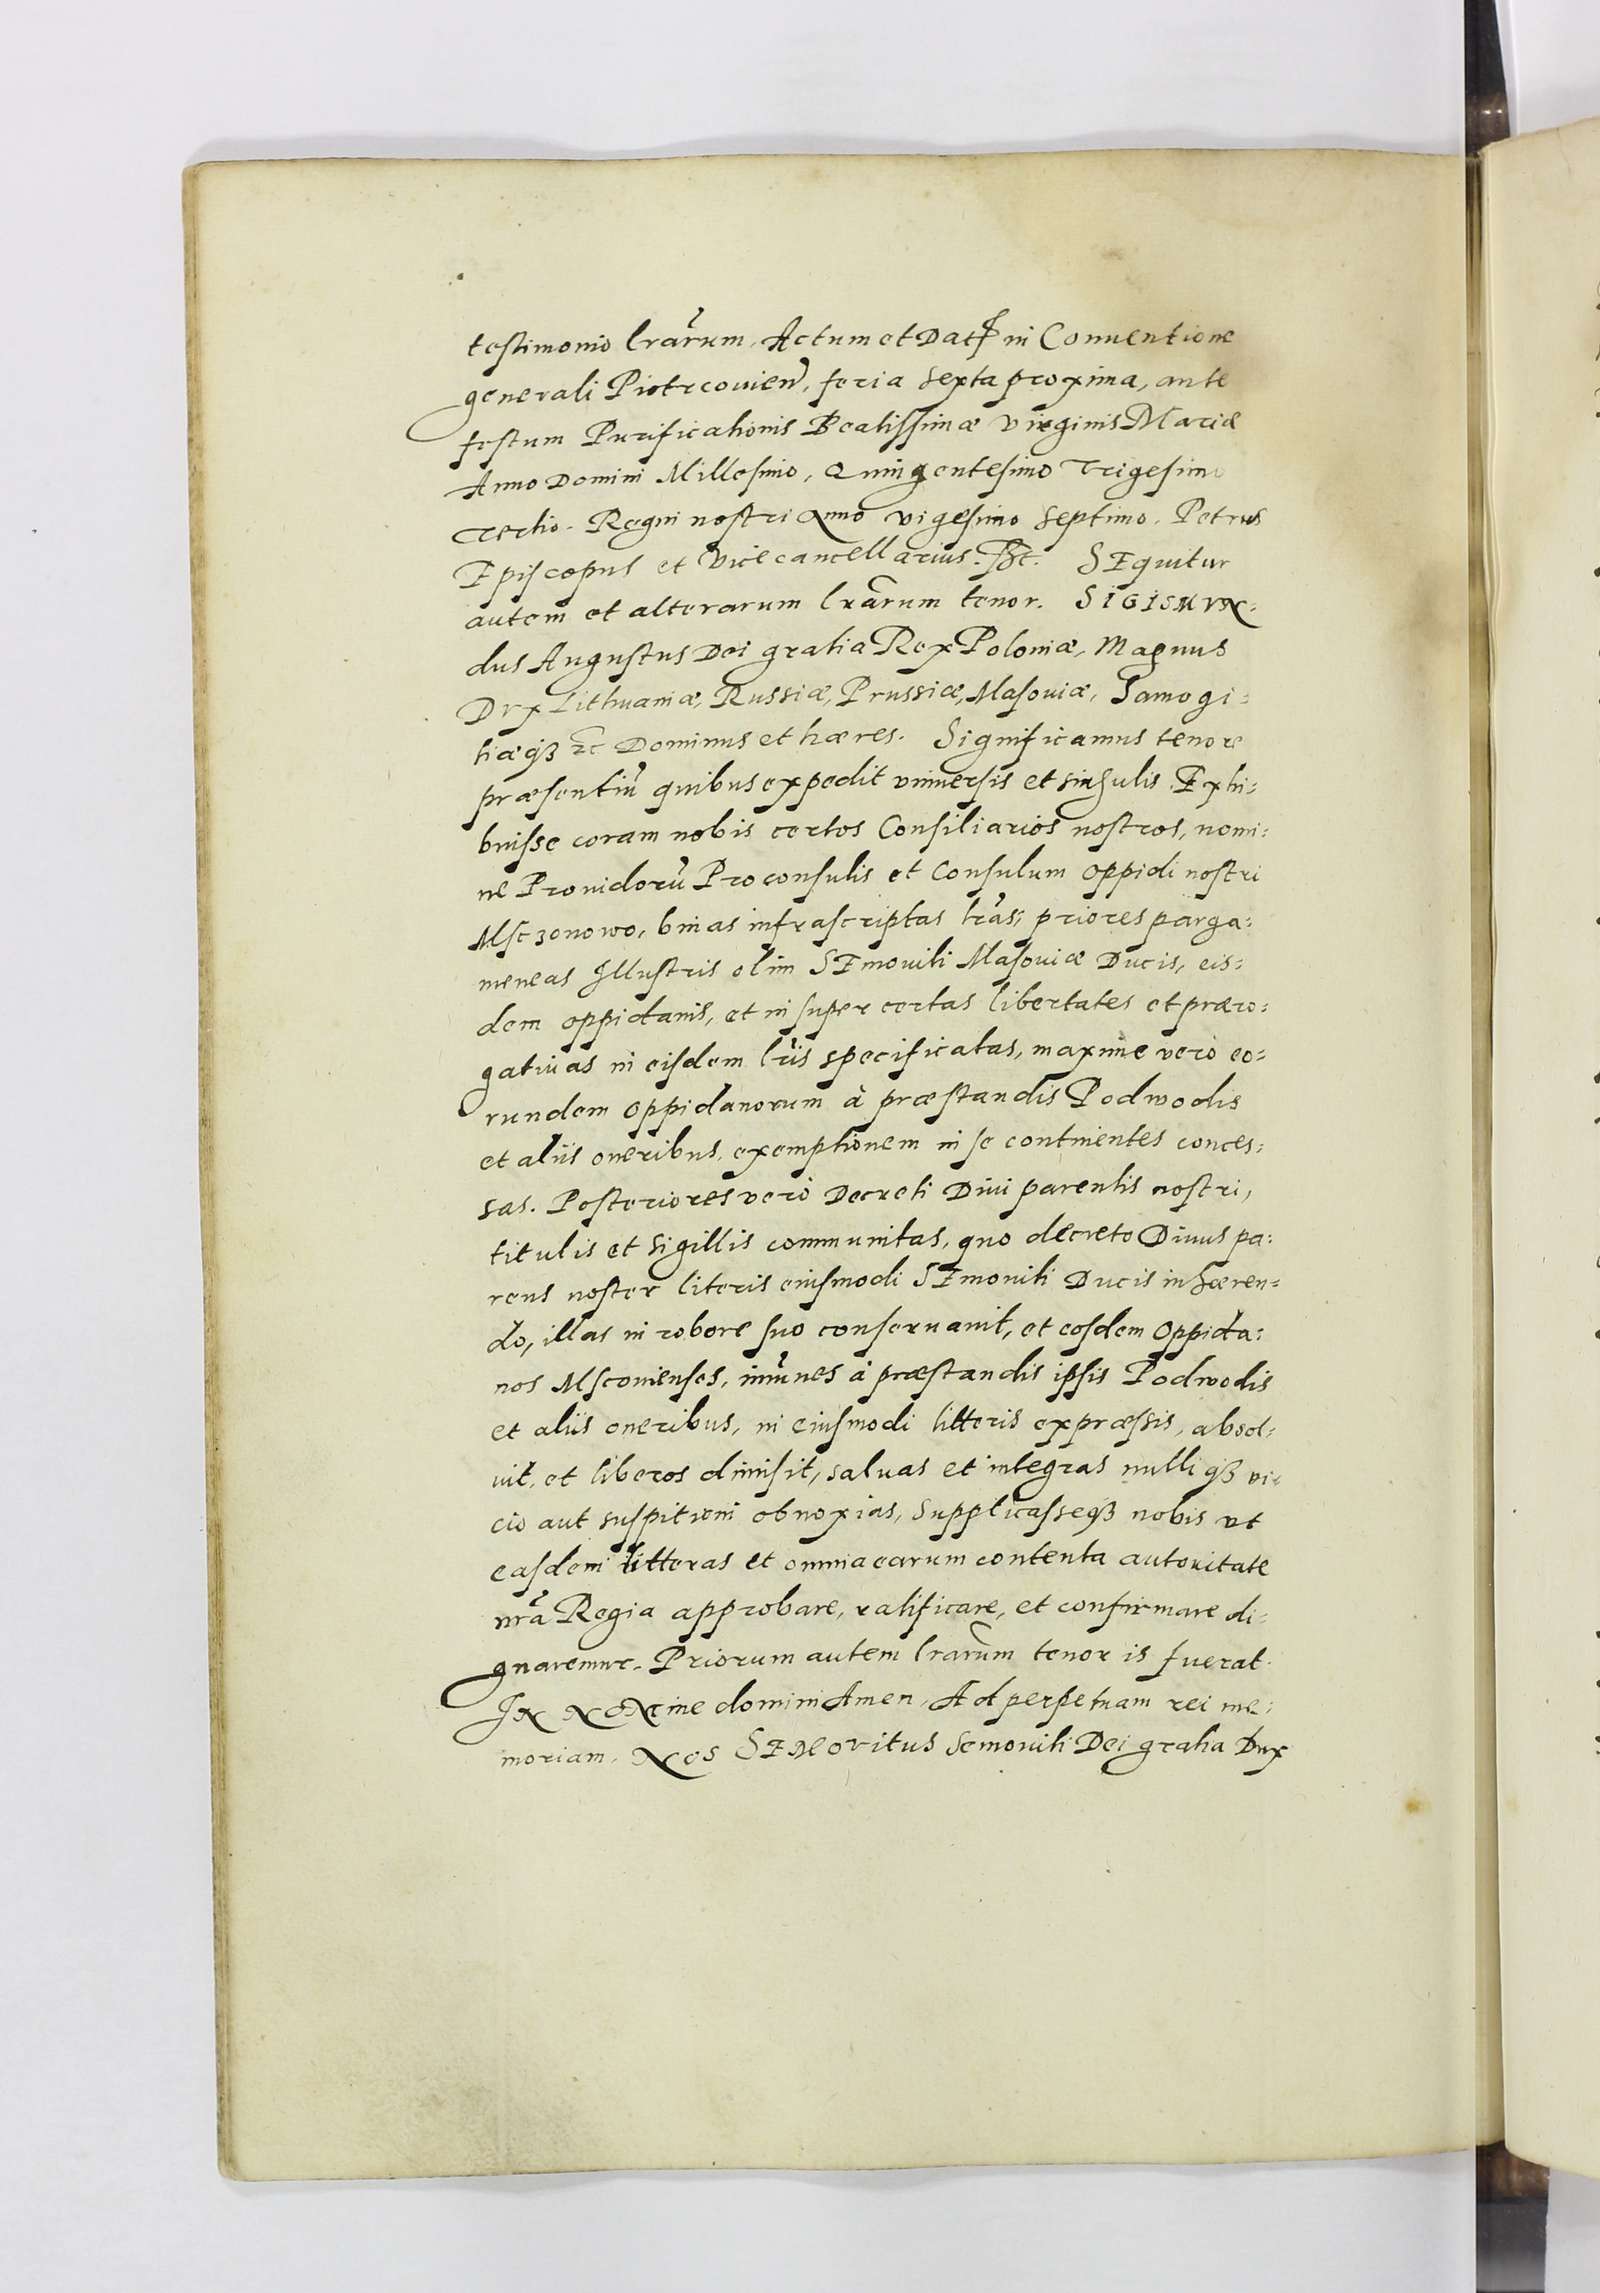 testimonio lrarum, Actum et Dat in Conuentione
generali Piotrcouien, feria sexta proxima, ante
festum Purificationis Beatissimæ Virginis Mariæ
Anno Domini Millesimo, Quingentesimo Trigesimo
Tertio. Regni nostri Anno vigesimo septimo. Petrus
Episcopus et Vicecancellarius. SEquitur
autem et alterarum lrarum tenor. SIGISMVN:
dus Augustus Dei gratia Rex Poloniæ, Magnus
Dux Lithuaniæ, Russiæ, Prussiæ, Masouiæ, Samogi:
tiæqȝ ꝛc Dominus et hæres. Significamus tenore
præsentiũ quibus expedit vniuersis et singulis. Exhi:
buisse coram nobis certos Consiliarios nostros, nomi:
ne Prouidorũ Proconsulis et Consulum oppidi nostri
Msczonowo, binas infrascriptas lras, priores parga:
meneas Illustris olim SEmouiti Masouiæ Ducis, eis:
dem oppidanis, et insuper certas libertates et præro:
gatiuas in eisdem lris specificatas, maxime verò eo:
rundem oppidanorum à præstandis Podwodis
et aliis oneribus, exemptionem in se continentes conces:
sas. Posteriores verò Decreti Diui parentis nostri,
titulis et sigillis communitas, quo decreto Diuus pa:
rens noster literis eiusmodi SEmouiti Ducis inhæren:
do, illas in robore suo conseruauit, et eosdem Oppida:
nos Msconienses, imũnes à præstandis ipsis Podwodis
et aliis oneribus, in eiusmodi litteris expræssis, absol:
uit, et liberos dimisit, saluas et integras nulliqȝ vi:
cio aut suspitioni obnoxias, Supplicasseqȝ nobis vt
easdem litteras et omnia earum contenta autoritate
nra Regia approbare, ratificare, et confirmare di:
gnaremur. Priorum autem lrarum tenor is fuerat.
IN NOMine domini Amen, Ad perpetuam rei me:
moriam, Nos SEMOVITUS Semouiti Dei gratia Dux